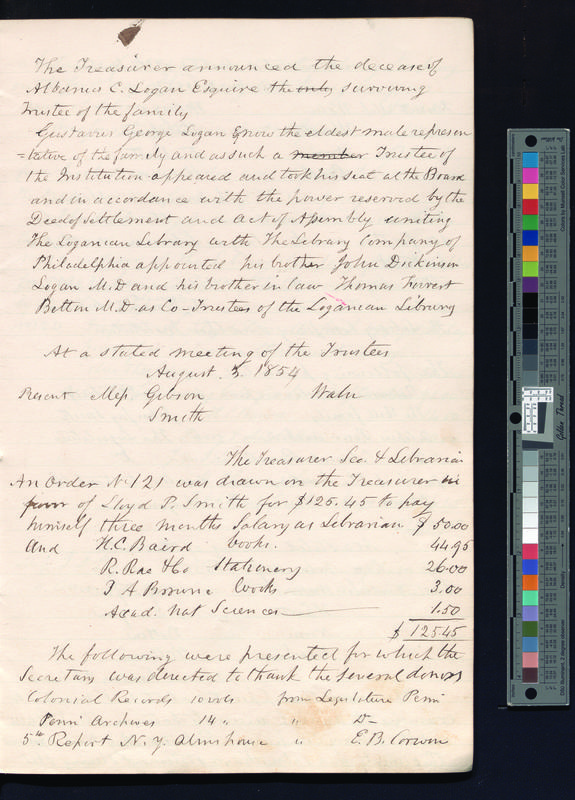 The Treasurer announced the decease of
Albanus C. Logan Esquire the only surviving
trustee of the family
Gustavus George Logan Esq now the eldest male represen
=tative of the family and as such a member Trustee of
the Institution appeared and took his seat at the Board
and in accordance with the power reserved by the
Deed of Settlement and act of Assembly uniting
The Loganian Library with The Library Company of
Philadelphia appointed his brother John Dickinson
Logan M.D and his brother in law Thomas Forrest
Betton M.D. as Co-Trustees of the Loganian Library
At a stated meeting of the Trustees
August 3. 1854
Present Mess Gibson Waln
Smith
The Treasurer Sec. & Librarian
An Order No 121 was drawn on the Treasurer in
favor of Lloyd P. Smith for $125.45 to pay
himself three months Salary as Librarian $ 50.00
and H.C. Baird books. 44.95
R. Rae & Co Stationery 26.00
J A Browne books 3.00
Acad. Nat Sciences 1.50
$ 125.45
The following were presented for which the
Secretary was directed to thank the several donors
Colonial Records 10 vols from Legislature Penn
Penn Archives 14 " " Do
5th Report N. Y. Almshouse " E. B. Corwin